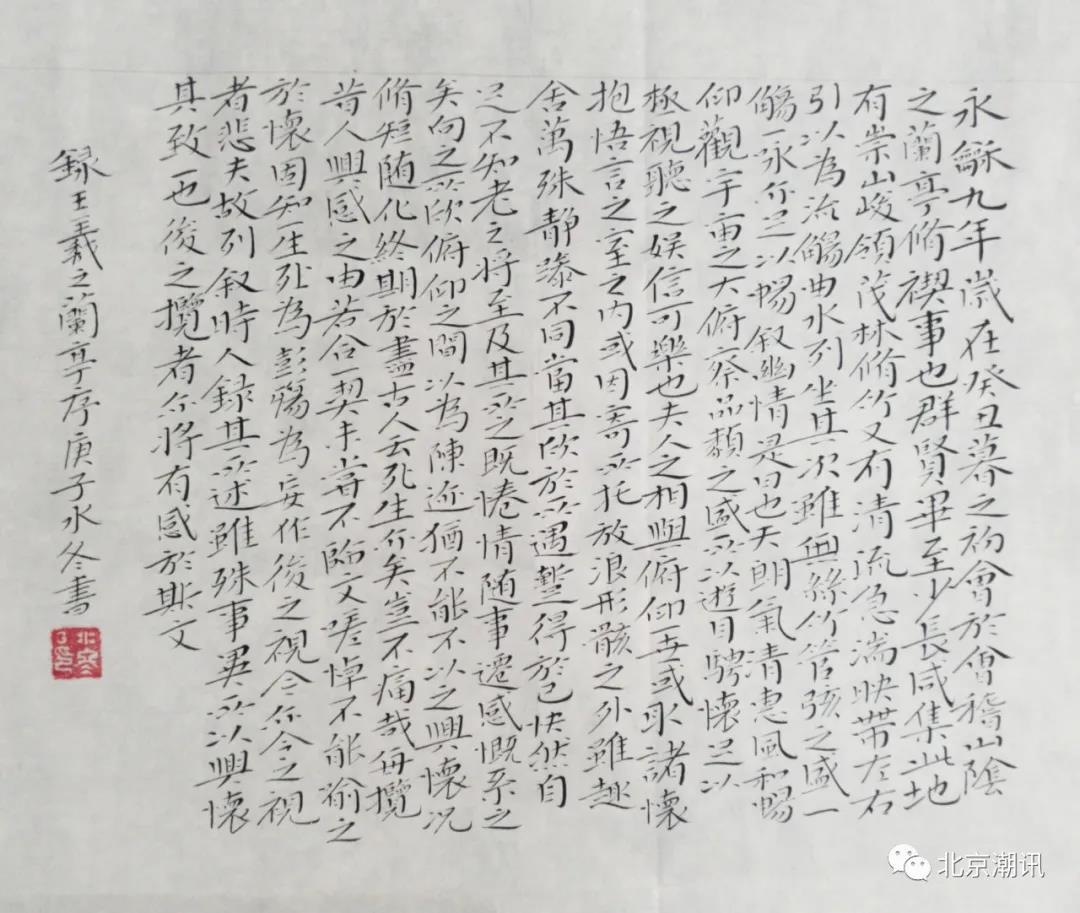 永龢九年歲在癸丑暮之初會於會稽山陰
之蘭亭脩禊事也群賢畢至少長咸集此地
有崇山峻領茂林脩竹又有清流急湍映帶左右
引以為流觴曲水列坐其次雖無絲竹管弦之盛一
觴一詠亦足以暢叙幽情是日也天朗氣清惠風和暢
仰觀宇宙之大俯察品類之盛所以遊目騁懷足以
極視聽之娛信可樂也夫人之相與俯仰一世或取諸懷
抱悟言之室之内或因寄所托放浪形骸之外雖趣
舍萬殊靜躁不同當其欣於所遇暫得於己快然自
足不知老之將至及其所之既惓情随事遷感慨系之
矣向之所欣俯仰之間以為陳迹猶不能不以之興懷况
脩短随化終期於盡古人云死生亦矣豈不痛哉每攬
昔人興感之由若合一契未嘗不臨文嗟悼不能喻之
於懷固知一生死為彭殤為妄作後之視今亦今之視
者悲夫故列叙時人録其所述雖殊事異所以興懷
其致一也後之攬者亦將有感於斯文
録王羲之蘭亭序庚子水冬書
北京潮讯